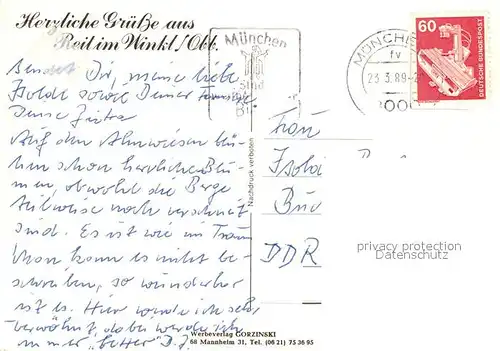 Herzliche Grüße aus
Reit im Winkl/Obb.
sendet Dir, meine liebe
Isolde sowie Deiner Familie
Deine Jutta
Auf den Almwiesen blü-
hen schon herrliche Blu-
men, obwohl die Berge
teilweise noch verschneit
sind. Es ist wie im Traum
Man kann es nicht be-
schreiben, so wunderbar
ist es. Hier werde ich sehr
verwöhnt, dabei werde ich
immer D. J.
Werbeverlag GORZINSKI
68 Mannheim 31, Tel. (06 21) 75 36 95
Nachdruck verboten
München
sind
MÜNCHE
fv
23.3.89-2
8000
60
DEUTSCHE BUNDESPOST
Frau
Isolde
DDR
privacy protection
DELCAMPE